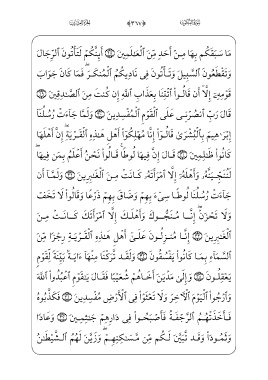 مَا سَبَقَكُم بِهَا مِنْ أَحَدٍ مِّنَ الْعَالَمِينَ أَئِنَّكُمْ لَتَأْتُونَ الرِّجَالَ
وَتَقْطَعُونَ السَّبِيلَ وَتَأْتُونَ فِي نَادِيكُمُ الْمُنكَرَ فَمَا كَانَ جَوَابَ
قَوْمِهِ إِلَّا أَن قَالُوا ائْتِنَا بِعَذَابِ اللَّهِ إِن كُنتَ مِنَ الصَّادِقِينَ
قَالَ رَبِّ انصُرْنِي عَلَى الْقَوْمِ الْمُفْسِدِينَ وَلَمَّا جَاءَتْ رُسُلُنَا
إِبْرَاهِيمَ بِالْبُشْرَى قَالُوا إِنَّا مُهْلِكُو أَهْلِ هَذِهِ الْقَرْيَةِ إِنَّ أَهْلَهَا
كَانُوا ظَالِمِينَ قَالَ إِنَّ فِيهَا لُوطًا قَالُوا نَحْنُ أَعْلَمُ بِمَن فِيهَا
لَنُنَجِّيَنَّهُ وَأَهْلَهُ إِلَّا امْرَأَتَهُ كَانَتْ مِنَ الْغَابِرِينَ وَلَمَّا أَن
جَاءَتْ رُسُلُنَا لُوطًا سِيءَ بِهِمْ وَضَاقَ بِهِمْ ذَرْعًا وَقَالُوا لَا تَخَفْ
وَلَا تَحْزَنْ إِنَّا مُنَجُّوكَ وَأَهْلَكَ إِلَّا امْرَأَتَكَ كَانَتْ مِنَ
الْغَابِرِينَ إِنَّا مُنزِلُونَ عَلَى أَهْلِ هَذِهِ الْقَرْيَةِ رِجْزًا مِّنَ
السَّمَاءِ بِمَا كَانُوا يَفْسُقُونَ وَلَقَد تَّرَكْنَا مِنْهَا آيَةً بَيِّنَةً لِّقَوْمٍ
يَعْقِلُونَ وَإِلَى مَدْيَنَ أَخَاهُمْ شُعَيْبًا فَقَالَ يَاقَوْمِ اعْبُدُوا اللَّهَ
وَارْجُوا الْيَوْمَ الْآخِرَ وَلَا تَعْثَوْا فِي الْأَرْضِ مُفْسِدِينَ فَكَذَّبُوهُ
فَأَخَذَتْهُمُ الرَّجْفَةُ فَأَصْبَحُوا فِي دَارِهِمْ جَاثِمِينَ وَعَادًا
وَثَمُودَا وَقَد تَّبَيَّنَ لَكُم مِّن مَّسَاكِنِهِمْ وَزَيَّنَ لَهُمُ الشَّيْطَانُ